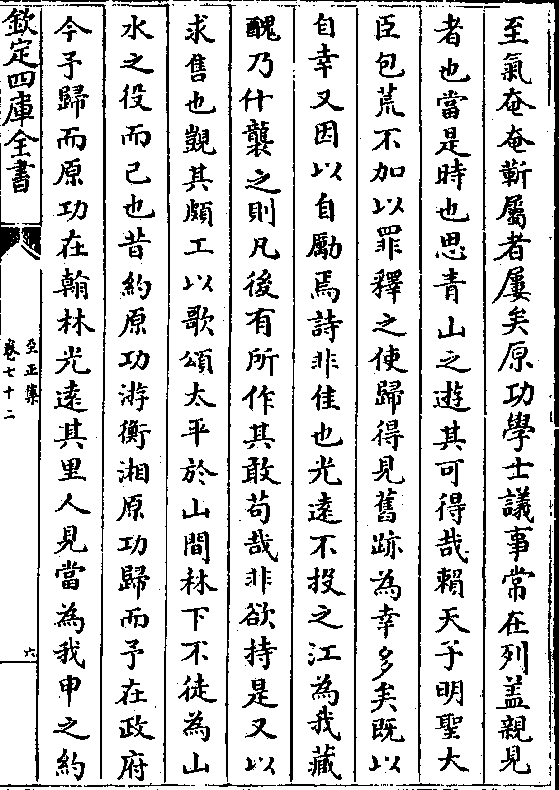 至氣奄奄蘄屬者屢矣原功學士議事常在列盖親見
者也當是時也思青山之遊其可得哉賴天子明聖大
臣包荒不加以罪釋之使歸得見舊跡為幸多矣既以
自幸又因以自勵焉詩非佳也光遠不投之江為我藏
醜乃什襲之則凡後有所作其敢苟哉非欲持是又以
求售也覬其頗工以歌頌太平於山間林下不徒為山
水之役而已也昔約原功游衡湘原功歸而予在政府
今予歸而原功在翰林光遠其里人見當為我申之約
欽定四庫全書
至正集
卷七十二
六